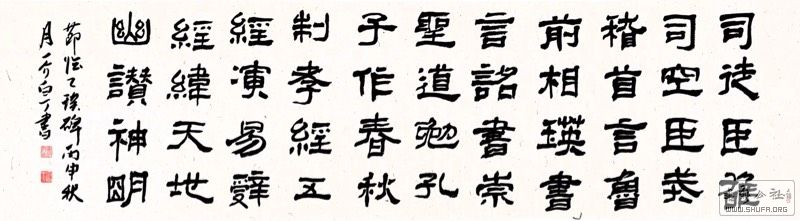 司徒臣雄
司空臣戒
稽首言魯
前相瑛書
言詔書崇
聖道勉孔
子作春秋
制孝經五
經演易辭
經緯天地
幽讚神明
節臨乙瑛碑丙申秋
月一介白丁書
WWW.SHUFA.ORG